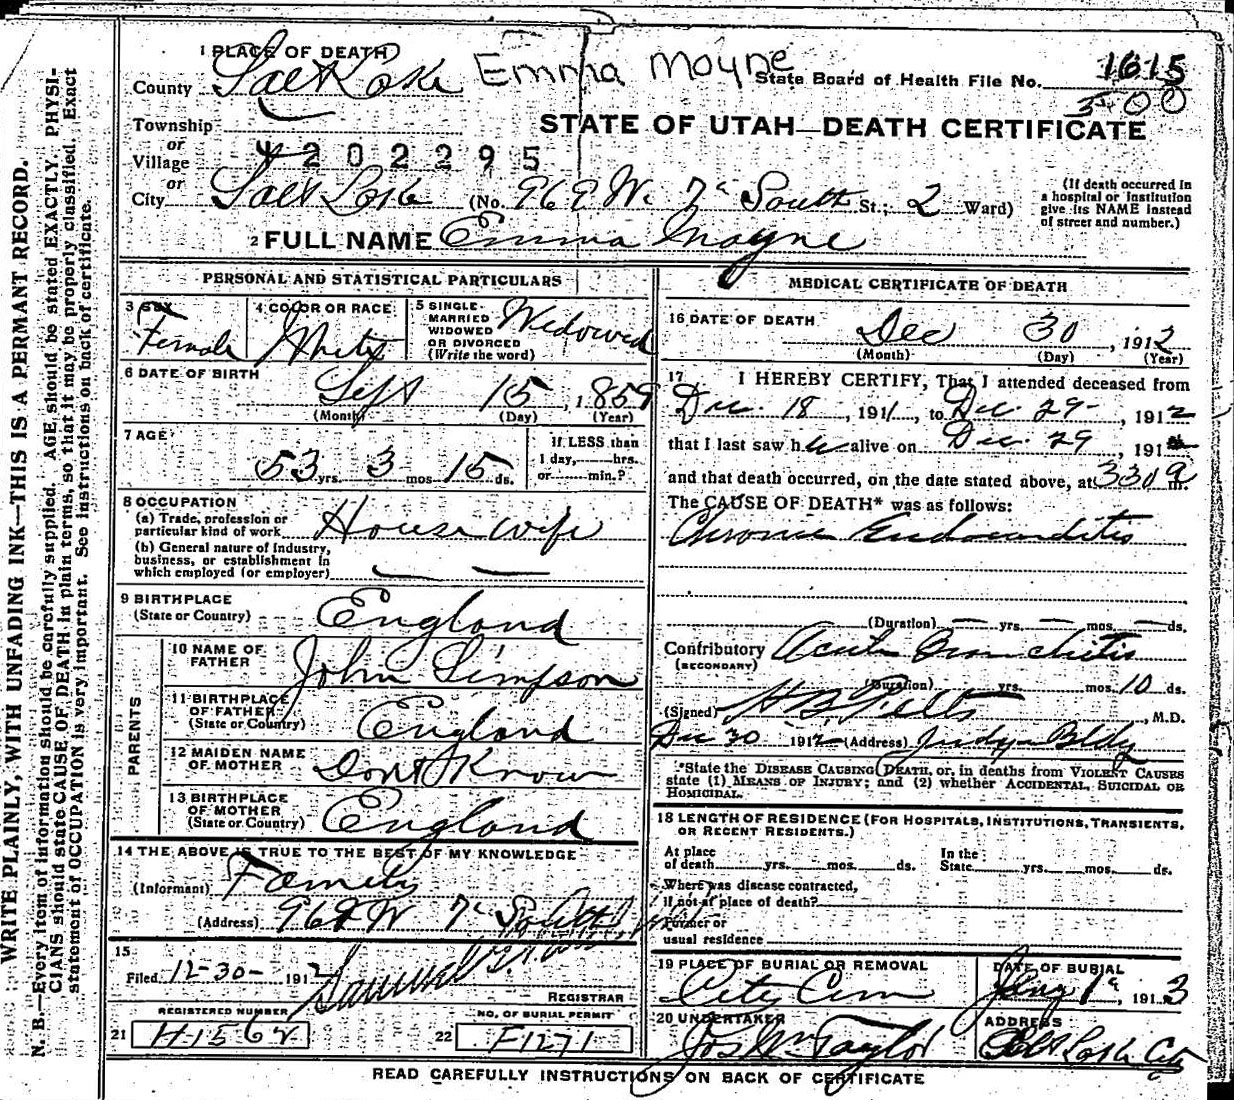 1 PLACE OF DEATH
Emma Mayne
State Board of Health File No. 1615
County Salt Lake
500
Township
STATE OF UTAH—DEATH CERTIFICATE
or
Village
4202295
or
City Salt Lake (No. 969 W. 7th South St.; 2 Ward)
(If death occurred in a hospital or institution give its NAME instead of street and number.)
2 FULL NAME Emma Mayne
PERSONAL AND STATISTICAL PARTICULARS
3 SEX Female
4 COLOR OR RACE White
5 SINGLE MARRIED WIDOWED OR DIVORCED (Write the word) Widowed
6 DATE OF BIRTH
Sept 15, 1859
(Month) (Day) (Year)
7 AGE
53 yrs. 3 mos 15 ds.
If LESS than 1 day, hrs. or min.?
8 OCCUPATION
(a) Trade, profession or particular kind of work House wife
(b) General nature of industry, business, or establishment in which employed (or employer)
9 BIRTHPLACE
(State or Country) England
PARENTS
10 NAME OF FATHER John Simpson
11 BIRTHPLACE OF FATHER (State or Country) England
12 MAIDEN NAME OF MOTHER Dont Know
13 BIRTHPLACE OF MOTHER (State or Country) England
14 THE ABOVE IS TRUE TO THE BEST OF MY KNOWLEDGE
(Informant) Family
(Address) 969 W 7th South
15
Filed 12-30- 1912 Samuel G.
REGISTRAR
REGISTERED NUMBER
21 H1562
NO. OF BURIAL PERMIT
22 F1271
MEDICAL CERTIFICATE OF DEATH
16 DATE OF DEATH
Dec 30, 1912
(Month) (Day) (Year)
17 I HEREBY CERTIFY, That I attended deceased from
Dec. 18, 191, to Dec. 29-, 1912
that I last saw her alive on Dec. 29, 191
and that death occurred, on the date stated above, at 330 a m.
The CAUSE OF DEATH* was as follows:
Chronic Endocarditis
(Duration) yrs. mos. ds.
Contributory Acute Bronchitis
(SECONDARY)
(Duration) yrs. mos. 10 ds.
(Signed) , M.D.
Dec 30 1912 (Address) Judge Bldg
*State the DISEASE CAUSING DEATH, or, in deaths from VIOLENT CAUSES
state (1) MEANS OF INJURY; and (2) whether ACCIDENTAL, SUICIDAL OR
HOMICIDAL.
18 LENGTH OF RESIDENCE (FOR HOSPITALS, INSTITUTIONS, TRANSIENTS,
OR RECENT RESIDENTS.)
At place of death yrs. mos. ds. In the State yrs. mos. ds.
Where was disease contracted,
if not at place of death?
Former or
usual residence
19 PLACE OF BURIAL OR REMOVAL
City Cem
DATE OF BURIAL
Jany 1st, 1913
20 UNDERTAKER
Jos Wm Taylor
ADDRESS
Salt Lake City
READ CAREFULLY INSTRUCTIONS ON BACK OF CERTIFICATE
WRITE PLAINLY, WITH UNFADING INK—THIS IS A PERMANT RECORD.
N. B.—Every item of information should be carefully supplied. AGE should be stated EXACTLY. PHYSI-
CIANS should state CAUSE OF DEATH in plain terms, so that it may be properly classified. Exact
statement of OCCUPATION is very important. See instructions on back of certificate.